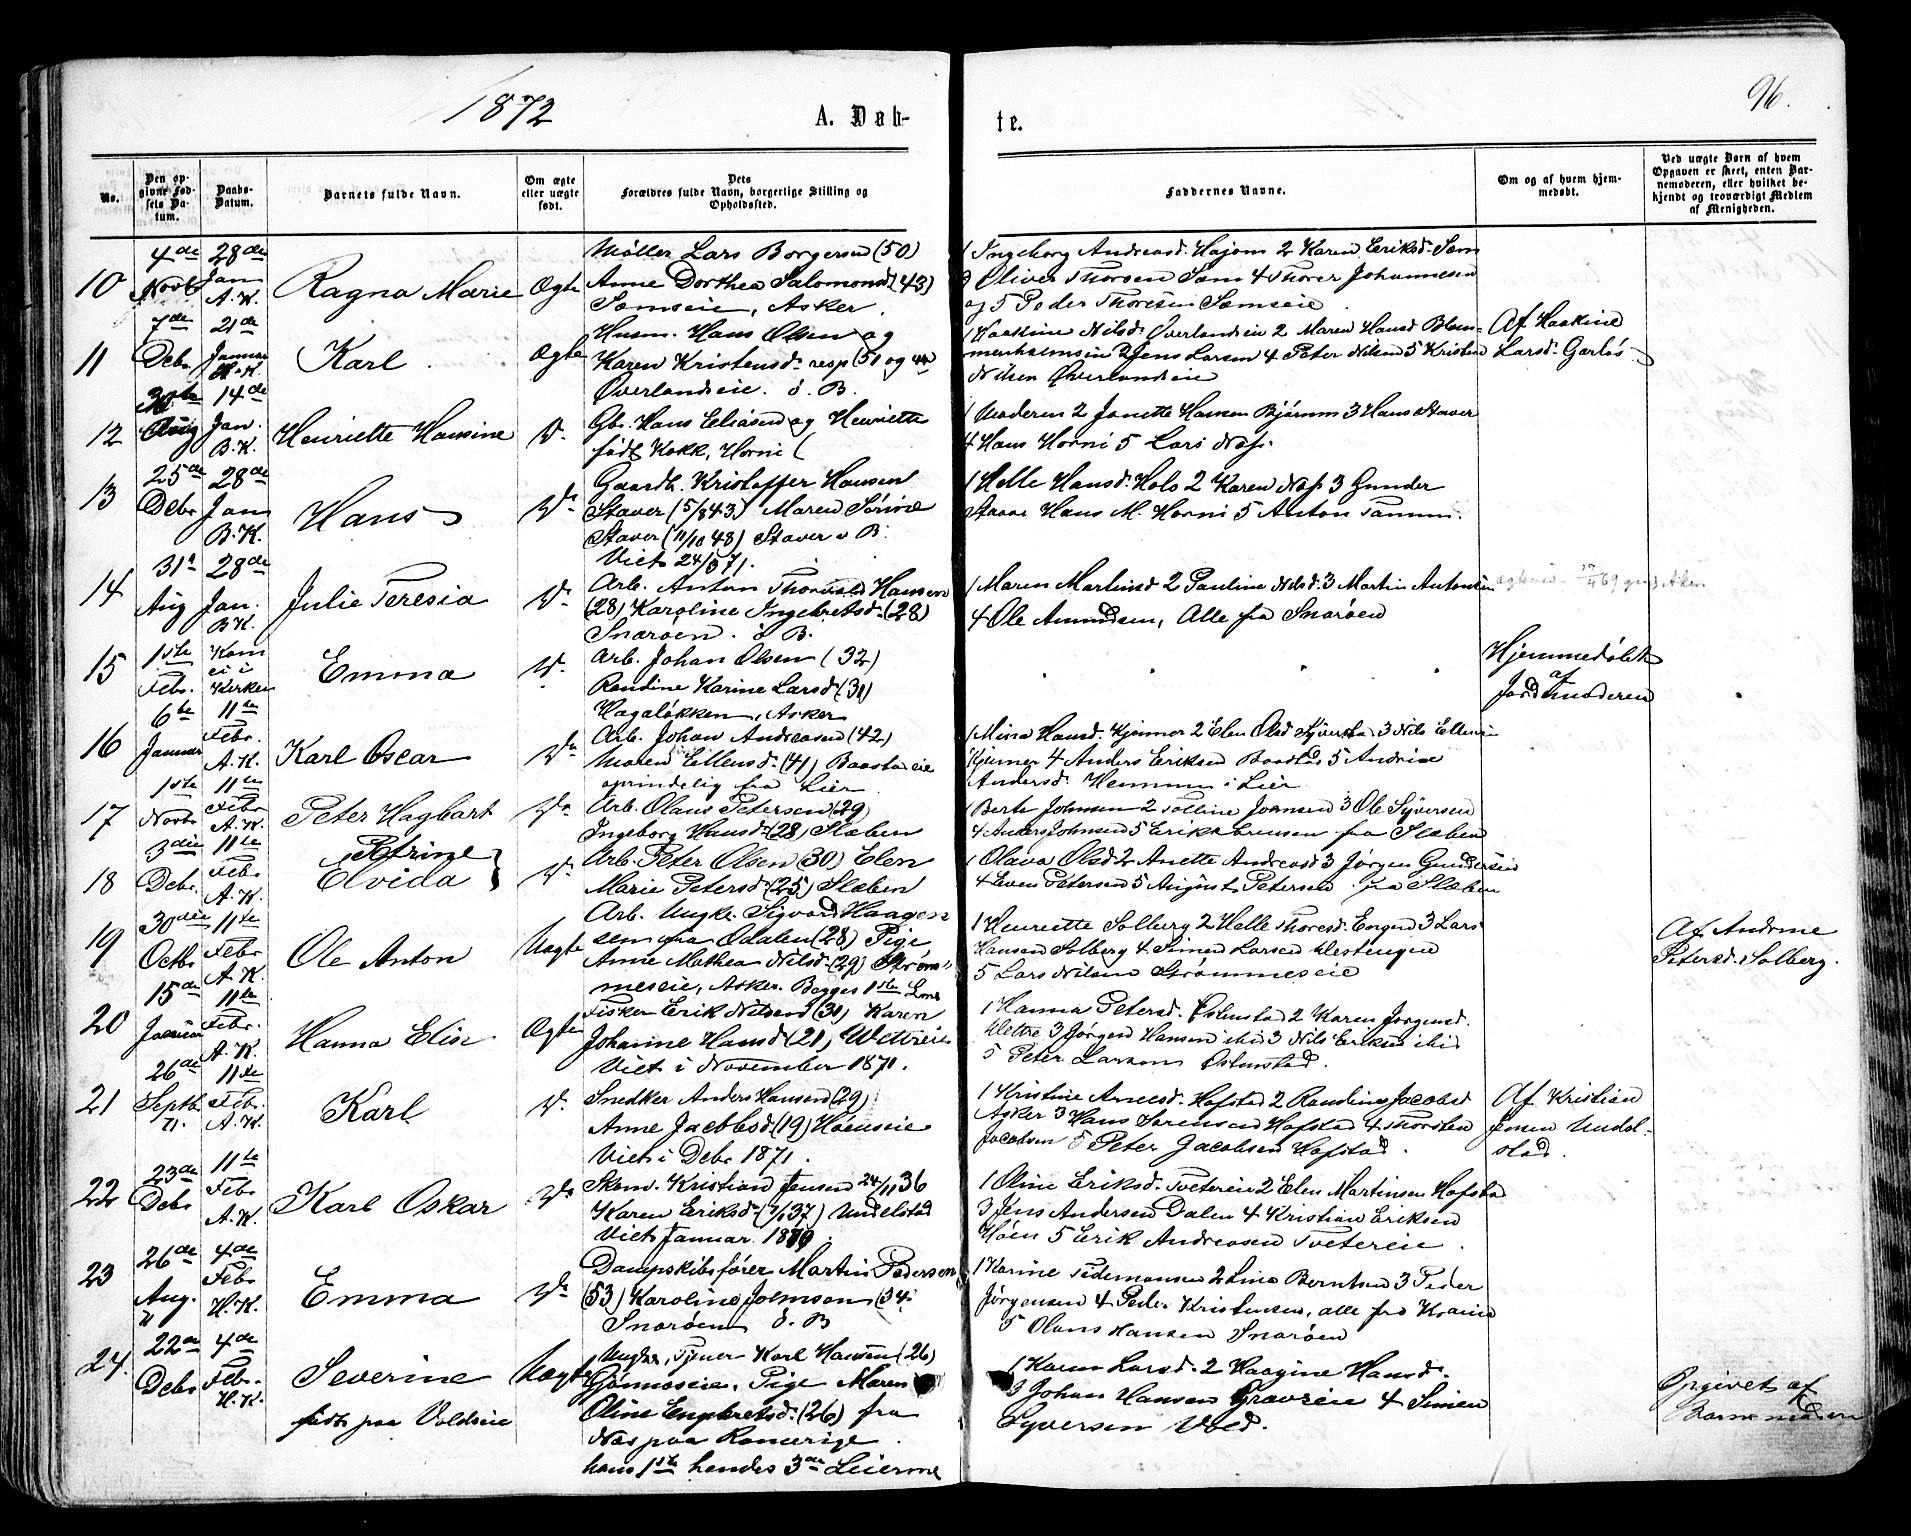 1872
A. Døb-
te.
96.
No.
Den op-
givne Fød-
sels Da-
tum.
Daabs-
Datum.
Barnets fulde Navn.
Om ægte
eller uægte
født.
Dets
Forældres fulde Navn, borgerlige Stilling og
Opholdssted.
Faddernes Navne.
Om og af hvem hjem-
medøbt.
Ved uægte Børn af hvem
Opgaven er skeet, enten Bar-
nemoderen, eller hvilket be-
kjendt og troværdigt Medlem
af Menigheden.
10
4de
Novbr
28de
Jan
A. K.
Ragna Marie
Ægte
Møller Lars Borgersen (50)
Anne Dorthea Salomonsd (43)
Semseie, Asker.
1 Ingeborg Andreasd. Hajom 2 Karen Eriksd. Sem
3 Oliver Thorsen Sem 4 Thorer Johannesen
og 5 Peder Thoresen Semseie
11
7de
Debr
21de
Januar
H. K.
Karl
Ægte
Husm. Hans Olsen og
Karen Kristensd. resp (51 og 44
Øverlandseie. ø. B.
1 Haakine Nilsd. Øverlandseie 2 Maren Hansd Blom-
menholmseie 3 Jens Larsen 4 Peter Nilsen 5 Kristen
Nilsen Øverlandseie
Af Haakine
Larsd. Gjerløs
12
30te
Aug
14de
Jan.
B. K.
Henriette Hansine
D.
Gbr. Hans Eliasen og Henriette
født Kokk, Horni
1 Moderen 2 Janette Hansen Bjørum 3 Hans Staver
4 Hans Horni 5 Lars Nap.
13
25de
Debr
28de
Jan
B. K.
Hans
Do
Gaardb. Kristoffer Hansen
Staver (5/8 43) Maren Sørine
Staver (11/10 48) Staver v B.
Viet 24/3 71.
1 Helle Hansd. Hols 2 Karen Nap 3 Gunder
Staver Hans M. Horni 5 Anton Tamm.
14
31te
Aug
28de
Jan.
B K.
Julie Teresia
Do
Arb. Anton Thorvald Hansen
(28) Karoline Ingebretsd. (28)
Snarøen. ø B.
1 Maren Martinsd 2 Pauline Nilsd. 3 Martin Antonsen
4 Ole Amundsen, Alle fra Snarøen
15
1ste
Febr.
Kom
ei i
Kirken
Emma
D.
Arb. Johan Olsen (32)
Randine Karine Larsd (31)
Hagaløkken, Asker
Hjemmedøbt
af
Jordemoderen
16
6te
Januar
11te
Febr.
A. K.
Karl Oscar
Do
Arb. Johan Andreasen (42)
Maren Ellensd. (41) Baastadeie
oprindelig fra Lier
1 Mina Hansd. Kjenner 2 Elen Olsd Syverstad 3 Nils Ellensen
Kjenner 4 Anders Eriksen Baastad 5 Andrine
Andersd. Hennum i Lier
17
1ste
Novbr
11te
Febr
A. K.
Peter Hagbart
Do
Arb. Olaus Petersen (29)
Ingeborg Hansd. (28) Slæben
1 Berte Johnsen 2 Polline Joansen 3 Ole Syversen
4 Anders Johnsen 5 Erik Larensen fra Slæben
18
3die
Debr.
11te
Febr
A. K.
Petrine
Elvida
D.
Arb. Peter Olsen (30) Elen
Marie Petersd. (25) Slæben
1 Olava Olsd 2 Anette Andreasd 3 Jørgen Gundersen
4 Even Petersen 5 August Petersen fra Slæben
19
30die
Octbr
11te
Febr
A. K.
Ole Anton
Uægte
Arb. Ungk. Sigvard Haagen
sen fra Odalen (28) Pige
Anne Mathea Nilsd. (29) Strøm-
meseie, Asker. Begges 1ste Lml
1 Henriette Solberg 2 Helle Thoresd. Engen 3 Lars
Hansen Solberg 4 Simen Larsen Vestengen
5 Lars Nilsen Strømmeseie
Af Andrine
Petersd. Solberg.
20
15de
Januar
11te
Febr.
A. K.
Hanna Elise
Ægte
Fisker Erik Nilsen (31) Karen
Johanne Hansd (21) Vettreeie
Viet i November 1871.
1 Hanna Petersd. Holmstad 2 Karen Jørgensd.
Vettre 3 Jørgen Hansen ibid 3 Nils Eriksen ibid
5 Peter Larsen Holmstad.
21
26de
Septbr
71.
11te
Febr.
A. K.
Karl
D.
Snedker Anders Hansen (29)
Anne Jacobsd. (19) Høenseie
Viet i Debr 1871.
1 Kristine Arnesd. Hofstad 2 Randine Jacobsd
Asker 3 Hans Sørensen Hofstad 4 Thorsten
Jacobsen 5 Peter Jacobsen Hofstad.
Af Kristian
Jensen Undel-
stad.
22
23de
Debr
11te
Febr
A. K.
Karl Oskar
Do
Skom. Kristian Jensen 24/11 36
Karen Eriksd. (7/1 37) Undelstad
Viet Januar 1870.
1 Oline Eriksd. Tvetereie 2 Elen Martinsen Hofstad
3 Jens Andersen Dalen 4 Kristian Eriksen
Høen 5 Erik Andreasen Tvetereie.
23
26de
Aug.
71
4de
Febr
H. K.
Emma
Do
Dampskibsfører Martin Pedersen
(53) Karoline Johnsen (34)
Snarøen ø. B
1 Karine Tidemansen 2 Lina Berntsen 3 Peder
Jørgensen 4 Peder Kristensen, alle fra
5 Olaus Hansen Snarøen
24.
22de
Debr
4de
Febr.
H. K.
Severine
født paa Voldseie
Uægte
Ungk., Tjener Karl Hansen (26)
Gjønnæseie. Pige Maren
Oline Engebretsd. (26) fra
Næs paa Romerige.
hans 1ste hendes 3de Leierm
1 Karen Larsd. 2 Haagine Hansd.
3 Johan Hansen Gravseie 4 Simen
Syversen Vold.
Opgivet af
Barnemoderen